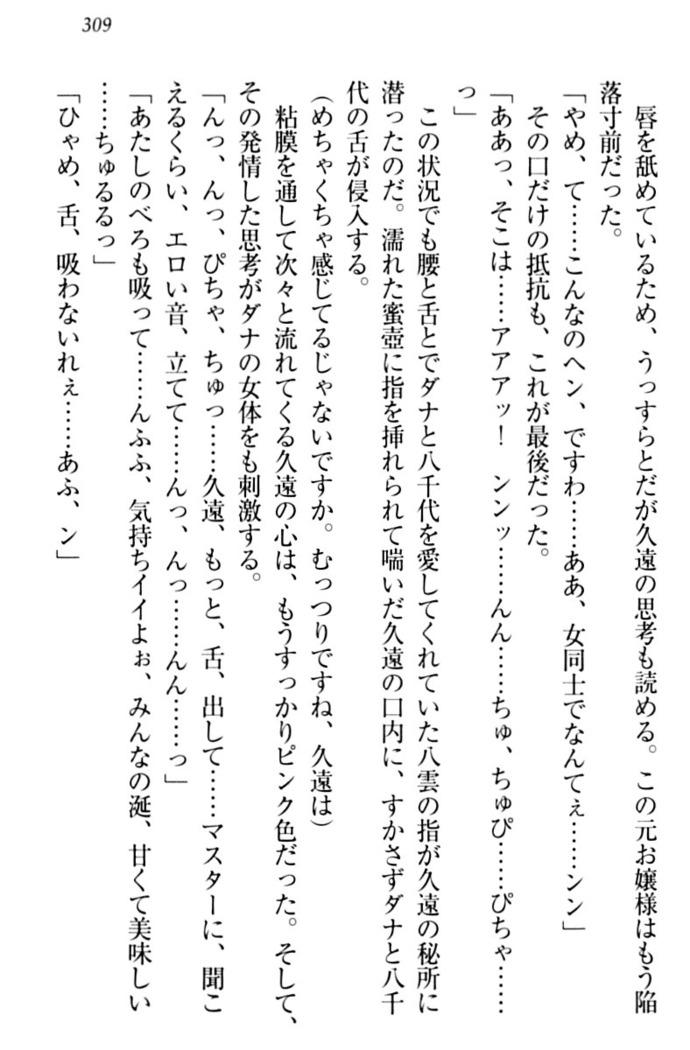 309
唇を舐めているため、うっすらとだが久遠の思考も読める。この元お嬢様はもう陥
落寸前だった。
「やめ、て……こんなのヘン、ですわ……ああ、女同士でなんてぇ……ンン」
その口だけの抵抗も、これが最後だった。
「ああっ、そこは……アアアッ！　ンンッ……んん……ちゅ、ちゅぴ……ぴちゃ……
っ」
この状況でも腰と舌とでダナと八千代を愛してくれていた八雲の指が久遠の秘所に
潜ったのだ。濡れた蜜壺に指を挿れられて喘いだ久遠の口内に、すかさずダナと八千
代の舌が侵入する。
(めちゃくちゃ感じてるじゃないですか。むっつりですね、久遠は)
粘膜を通して次々と流れてくる久遠の心は、もうすっかりピンク色だった。そして、
その発情した思考がダナの女体をも刺激する。
「んっ、んっ、ぴちゃ、ちゅっ……久遠、もっと、舌、出して……マスターに、聞こ
えるくらい、エロい音、立てて……んっ、んっ……んん……っ」
「あたしのべろも吸って……んふふ、気持ちイイよぉ、みんなの涎、甘くて美味しい
……ちゅるるっ」
「ひゃめ、舌、吸わないれぇ……あふ、ン」